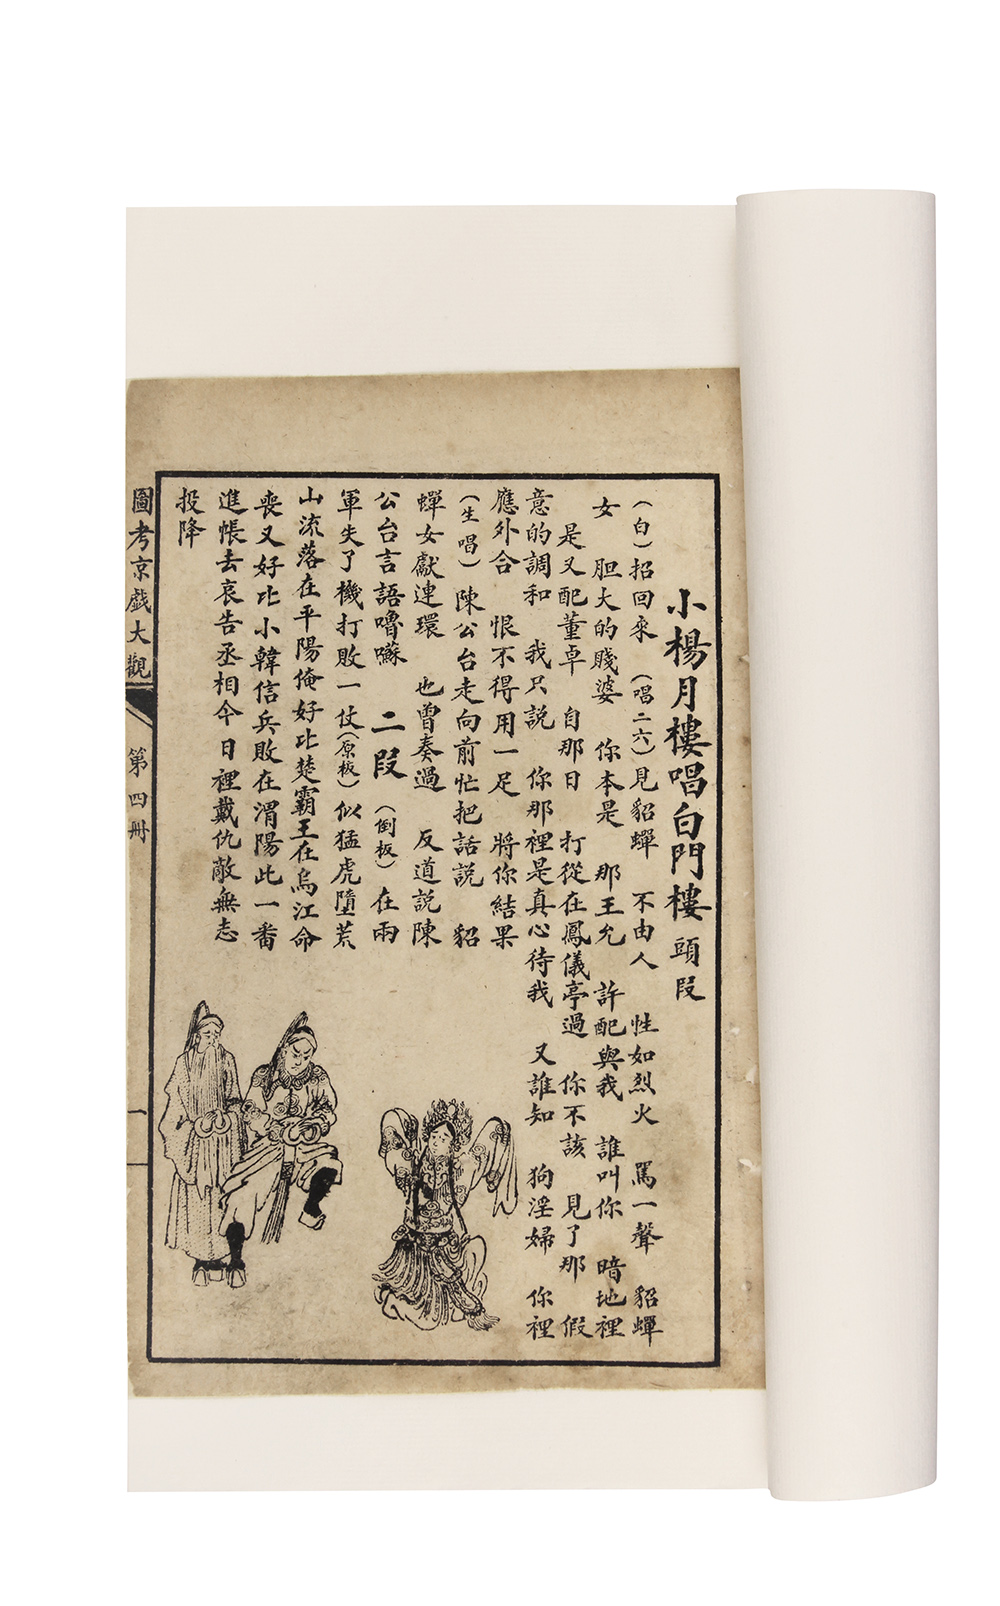 小楊月樓唱白門樓 頭段
(白)招回來 (唱二六)見貂蟬 不由人 性如烈火 罵一聲 貂蟬
女 胆大的賤婆 你本是 那王允 許配與我 誰叫你 暗地裡
是又配董卓 自那日 打從在鳳儀亭過 你不該 見了那 假
意的調和 我只説 你那裡是真心待我 又誰知 狗淫婦 你裡
應外合 恨不得用一足 將你結果
(生唱)陳公台走向前忙把話説 貂
蟬女獻連環 也曾奏過 反道説陳
公台言語嚕囌 二段 (倒板)在兩
軍失了機打敗一仗(原板)似猛虎墮荒
山流落在平陽俺好比楚霸王在烏江命
喪又好比小韓信兵敗在渭陽此一番
進帳去哀告丞相今日裡戴仇敵無志
投降
圖考京戲大觀 第四冊 一